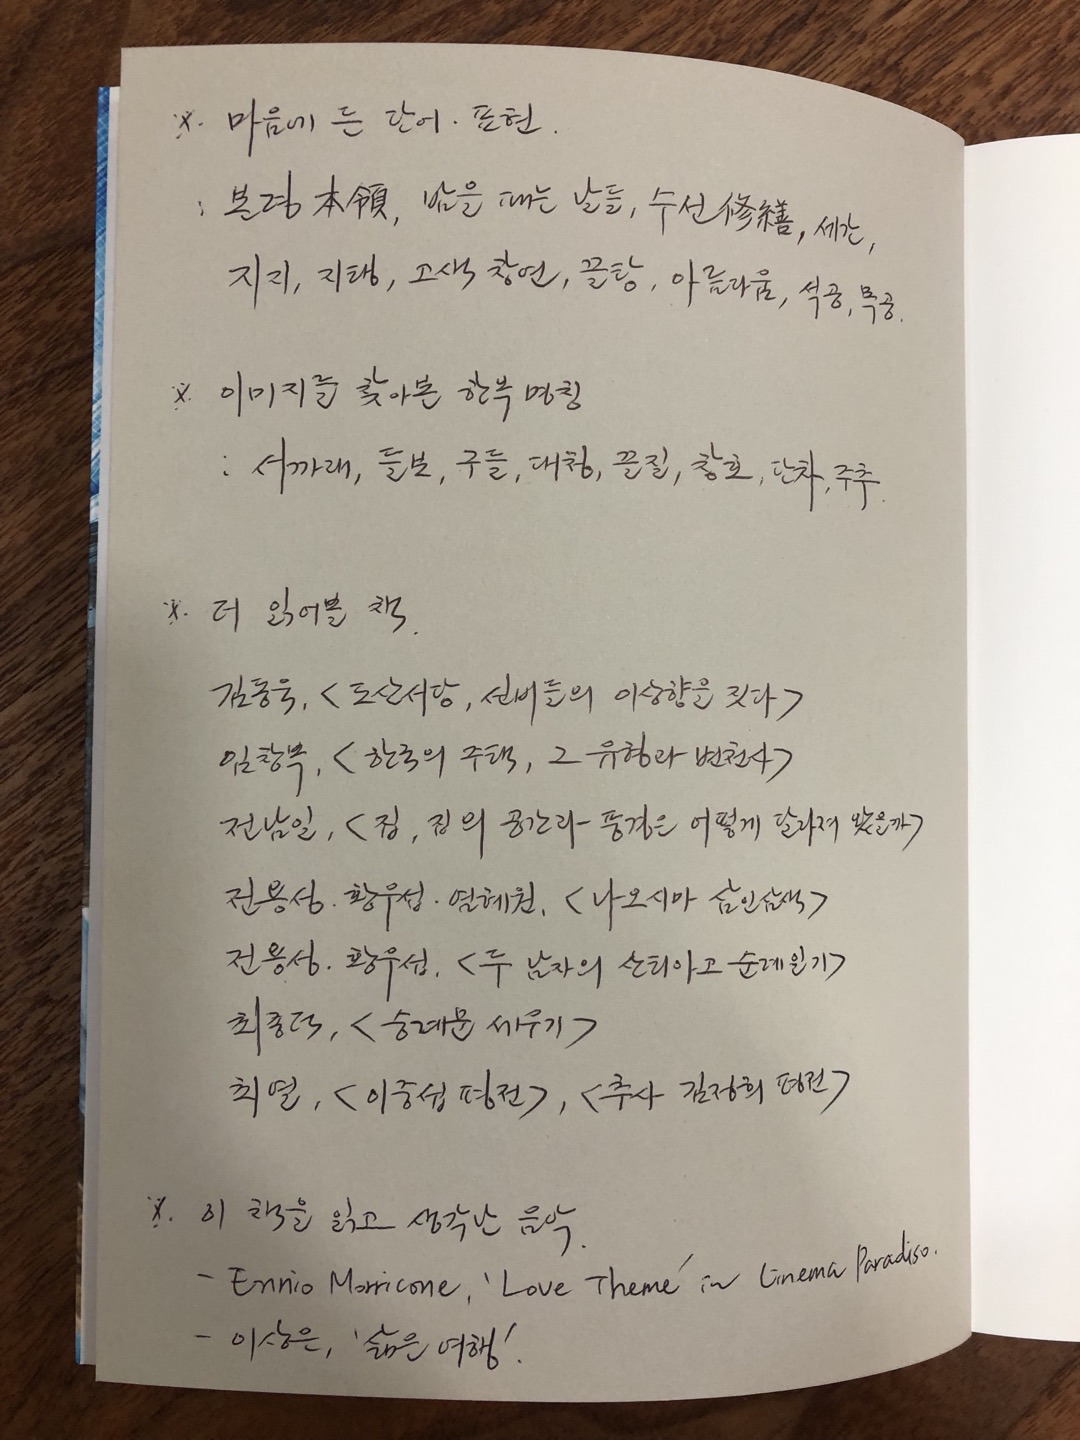 ※. 마음에 든 단어·표현.
: 본령 本領, 밤을 패는 날들, 수선 修繕, 세간,
지지, 지탱, 고색 창연, 끌탕, 아름다움, 석공, 목공.
※. 이미지를 찾아본 한부 명칭
: 서까래, 들보, 구들, 대청, 끌질, 창호, 단차, 주추.
※. 더 읽어볼 책.
김동욱, <도산서당, 선비들의 이상향을 짓다>
임창복, <한국의 주택, 그 유형과 변천사>
전남일, <집, 집의 공간과 풍경은 어떻게 달라져 왔을까>
전용성·황우섭·염혜원, <나오시마 삼인삼색>
전용성·황우섭, <두 남자의 산티아고 순례일기>
최종덕, <숭례문 세우기>
최열, <이중섭 평전>, <추사 김정희 평전>
※. 이 책을 읽고 생각난 음악.
- Ennio Morricone, 'Love Theme' in Cinema Paradiso.
- 이상은, '삶은 여행'.